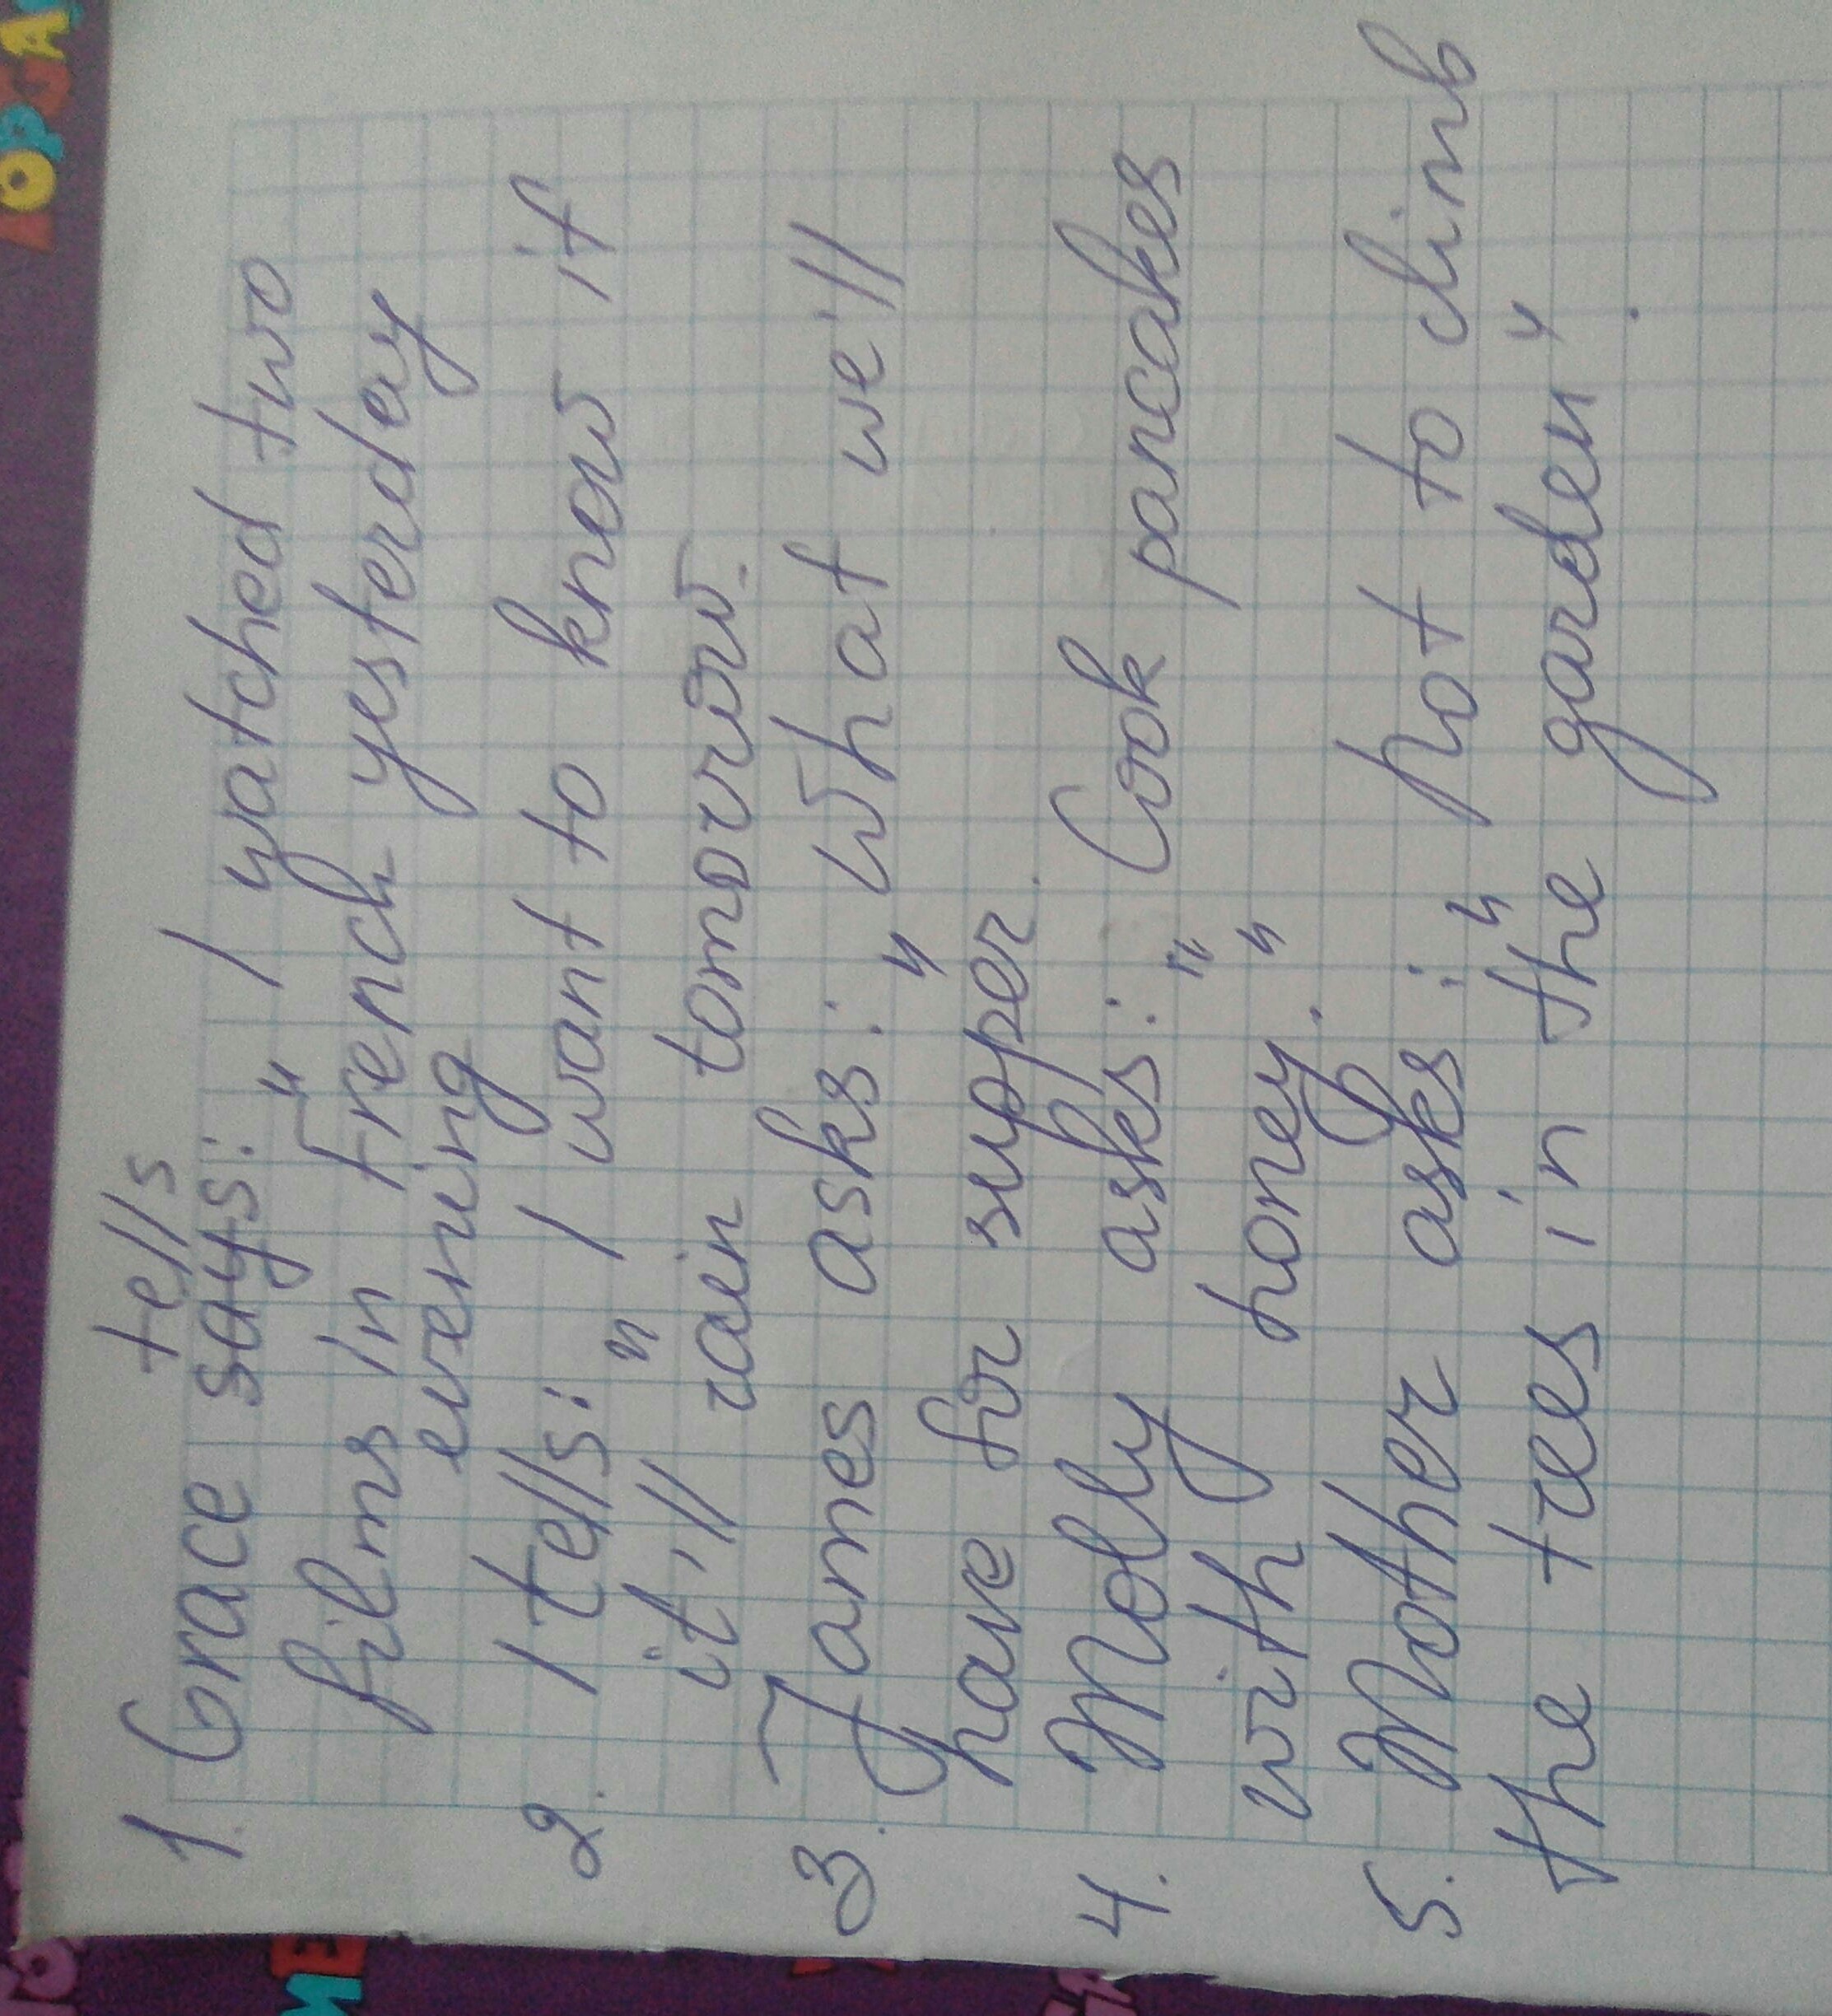 tells
1. Grace says: „ I watched two
films in French yesterday
evening
2. I tells: „ I want to know if
it'll rain tomorrow.
3. James asks: „ What we'll
have for supper.
4. Molly asks: „ Cook pancakes
with honey. "
5. Mother asks: „ not to climb
the trees in the garden".